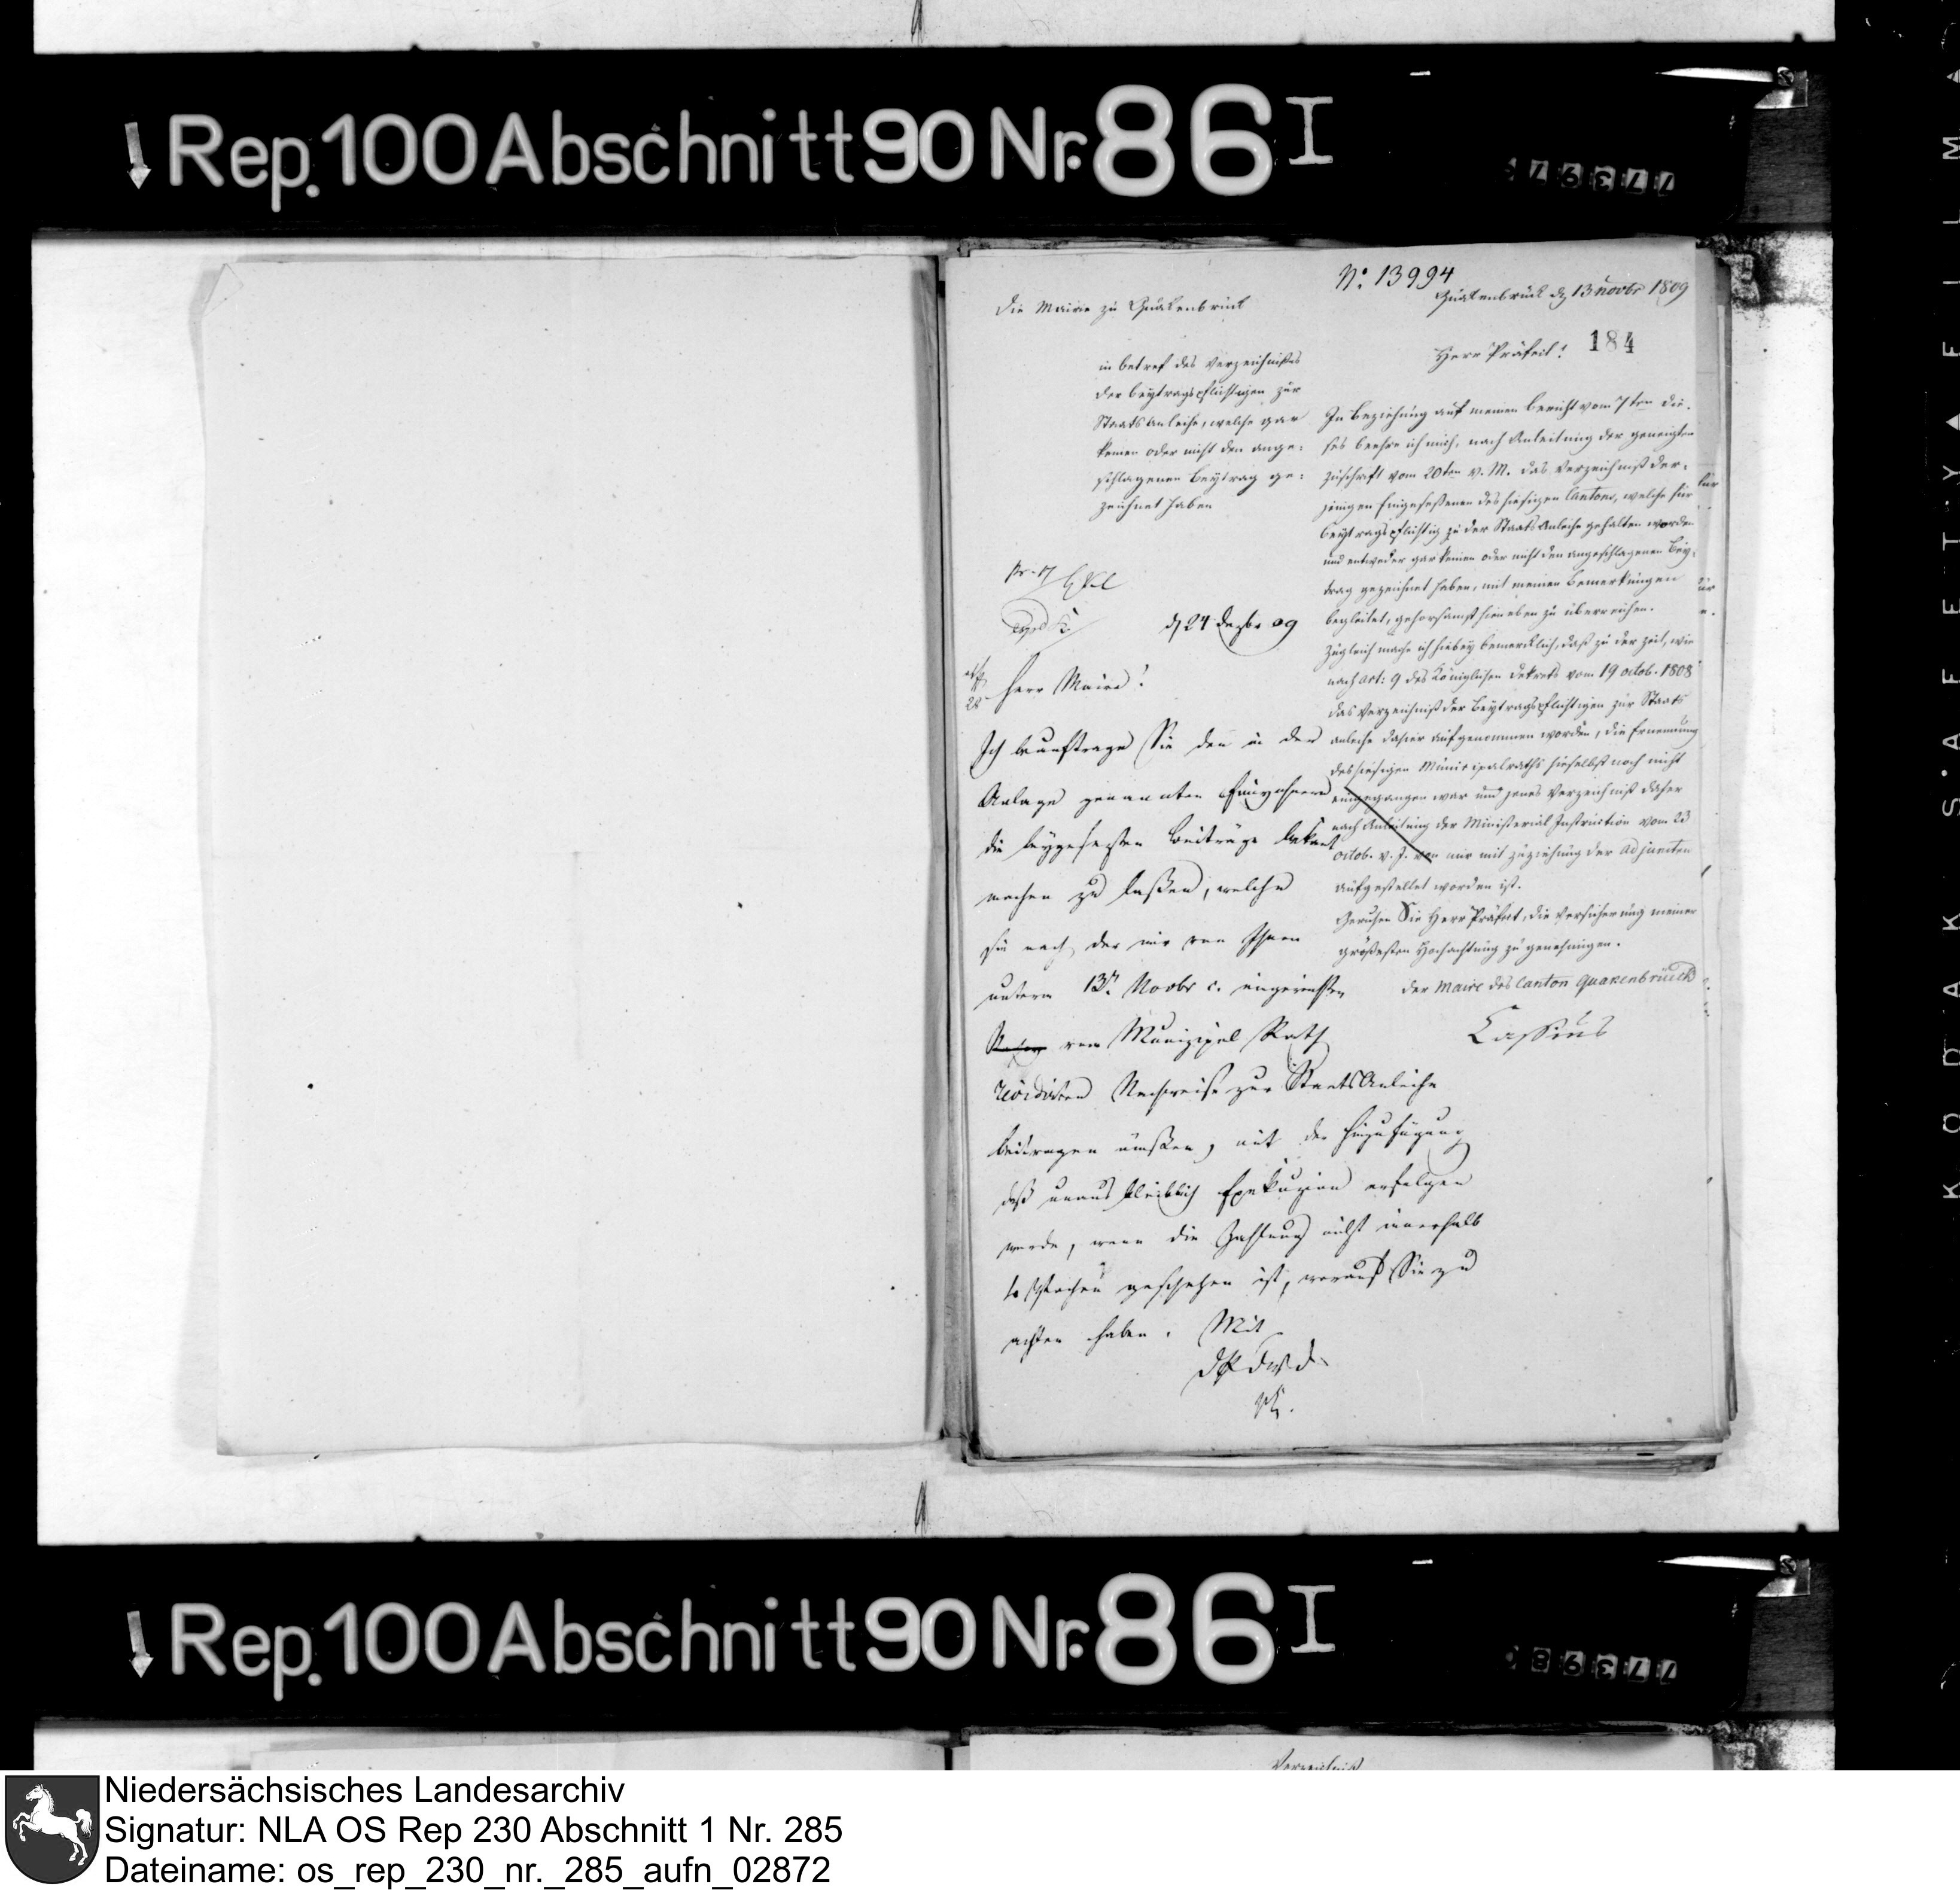 Rep. 100 Abschnitt 90 Nr. 86 I
No 13994
Quakenbrück d 13 Novbr 1809
die Mairie zu Quakenbrück
184
Herr Präfect!
in betref des Verzeichnißes
der beytragspflichtigen zur
Staats Anleihe, welche gar
keinen oder nicht den ange:
schlagenen Beytrag ge:
zeichnet haben
In Beziehung auf meinen Bericht vom 7ten die-
ses beehre ich mich, nach Anleitung der geneigten
Zuschrift vom 20ten v. M. das Verzeichniß der-
jenigen Eingeseßenen des hiesigen Cantons, welche für
beytragspflichtig zu der Staats Anleihe gehalten worden
und entweder gar keinen oder nicht den angeschlagenen Bey-
trag gezeichnet haben, mit meinen Bemerkungen
begleitet, gehorsamst hieneben zu überreichen.
Zugleich mache ich hiebey bemerklich, daß zu der Zeit, wie
nach Art: 9 des Königlichen Dekrets vom 19 Octob. 1808
das Verzeichniß der Beytragspflichtigen zur Staats
anleihe dahier aufgenommen worden, die Ernennung
des hiesigen Municipalraths hieselbst noch nicht
eingegangen war und jenes Verzeichniß daher
nach Anleitung der Ministerial Instruction vom 23
Octob. v. J. von mir mit Zuziehung der Adjuncten
aufgestellet worden ist.
Geruhen Sie Herr Präfect, die Versicherung meiner
größesten Hochachtung zu genehmigen.
der Maire des Canton Quakenbrück
Cassius
d 24 Dezbr 09
Herr Maire!
Ich beauftrage Sie den in der
Anlage genannten Einwohnern
die beygesezten Beiträge bekant
machen zu laßen, welche
sie nach der mir von Ihnen
unterm 13n Novbr c. eingereichten
vom Munizipal Rath
revidirten Nachweise zur Staats Anleihe
beitragen müßen, mit der Hinzufügung
daß unausbleiblich Exekuzion erfolgen
werde, wenn die Zahlung nicht innerhalb
Wochen geschehen ist, worauf Sie zu
achten haben. Mit
Rep. 100 Abschnitt 90 Nr. 86 I
Verzeichniß
Niedersächsisches Landesarchiv
Signatur: NLA OS Rep 230 Abschnitt 1 Nr. 285
Dateiname: os_rep_230_nr._285_aufn_02872
KODAK SAFETY FILM